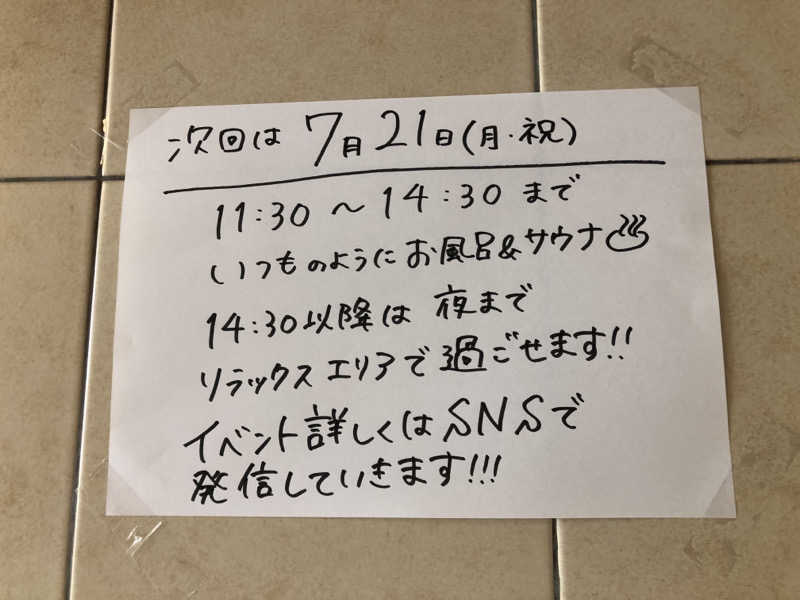 次回は 7月21日(月・祝)
11:30 〜 14:30 まで
いつものようにお風呂&サウナ♨
14:30以降は 夜まで
リラックスエリアで過ごせます!!
イベント詳しくはSNSで
発信していきます!!!